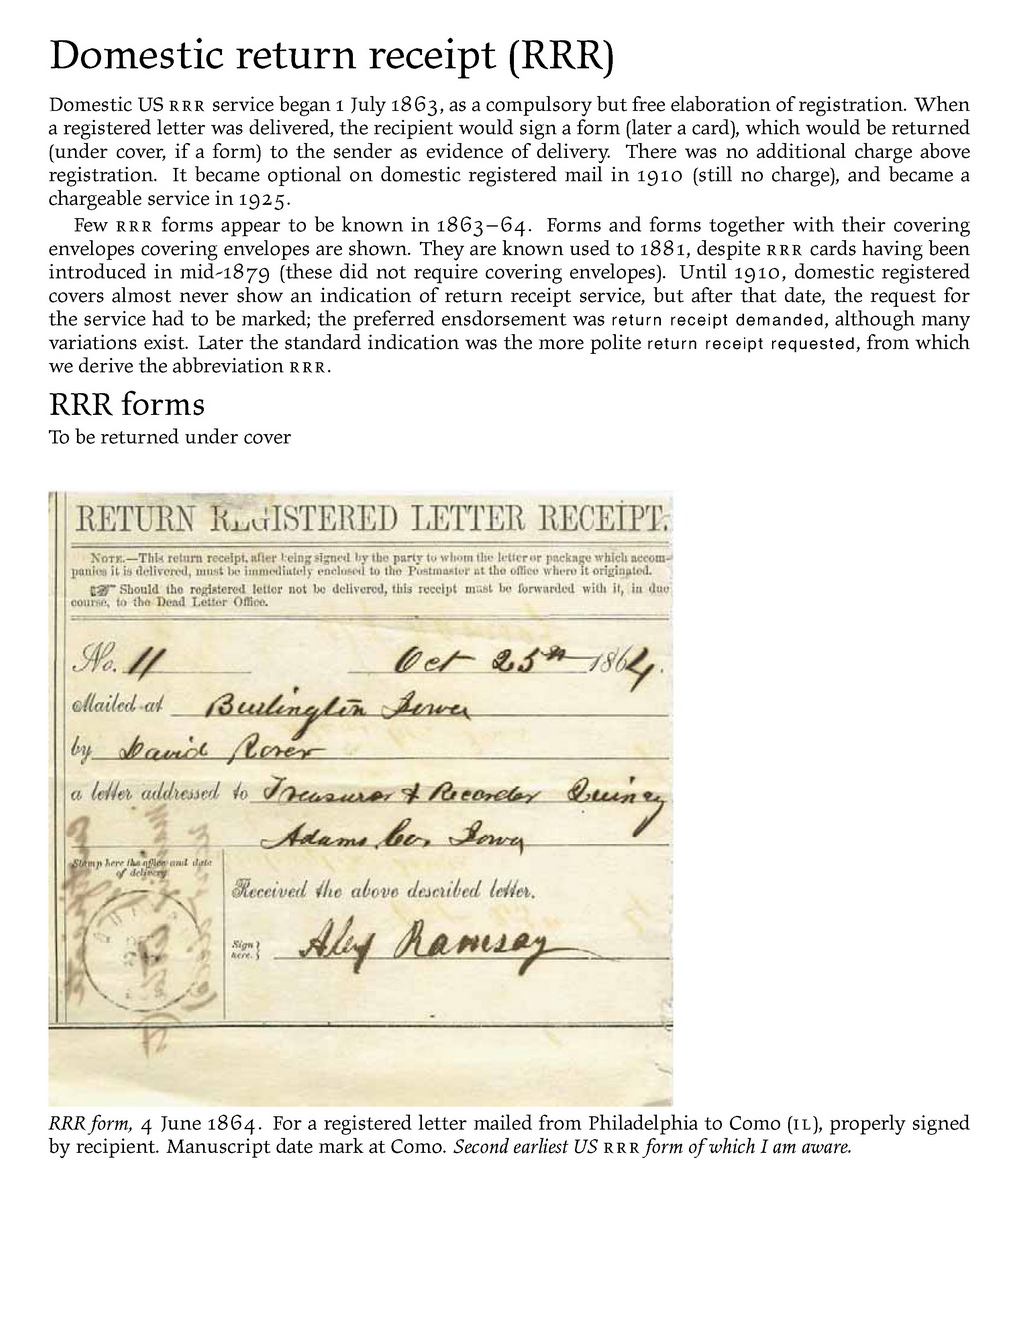 Domestic return receipt (RRR)
Domestic US RRR service began 1 July 1863, as a compulsory but free elaboration of registration. When
a registered letter was delivered, the recipient would sign a form (later a card), which would be returned
(under cover, if a form) to the sender as evidence of delivery. There was no additional charge above
registration. It became optional on domestic registered mail in 1910 (still no charge), and became a
chargeable service in 1925.
Few RRR forms appear to be known in 1863–64. Forms and forms together with their covering
envelopes covering envelopes are shown. They are known used to 1881, despite RRR cards having been
introduced in mid-1879 (these did not require covering envelopes). Until 1910, domestic registered
covers almost never show an indication of return receipt service, but after that date, the request for
the service had to be marked; the preferred ensdorsement was return receipt demanded, although many
variations exist. Later the standard indication was the more polite return receipt requested, from which
we derive the abbreviation RRR.
RRR forms
To be returned under cover
RETURN REGISTERED LETTER RECEIPT.
NOTE.—This return receipt, after being signed by the party to whom the letter or package which accom-
panies it is delivered, must be immediately enclosed to the Postmaster at the office where it originated.
☞ Should the registered letter not be delivered, this receipt must be forwarded with it, in due
course, to the Dead Letter Office.
No. 11 Oct 25th 1864.
Mailed at Burlington Iowa
by David Rorer
a letter addressed to Treasurer & Recorder Quincy
Adams Co. Iowa
Stamp here the office and date
of delivery.
Received the above described letter.
Sign
here.
Alex Ramsay
RRR form, 4 June 1864. For a registered letter mailed from Philadelphia to Como (IL), properly signed
by recipient. Manuscript date mark at Como. Second earliest US RRR form of which I am aware.